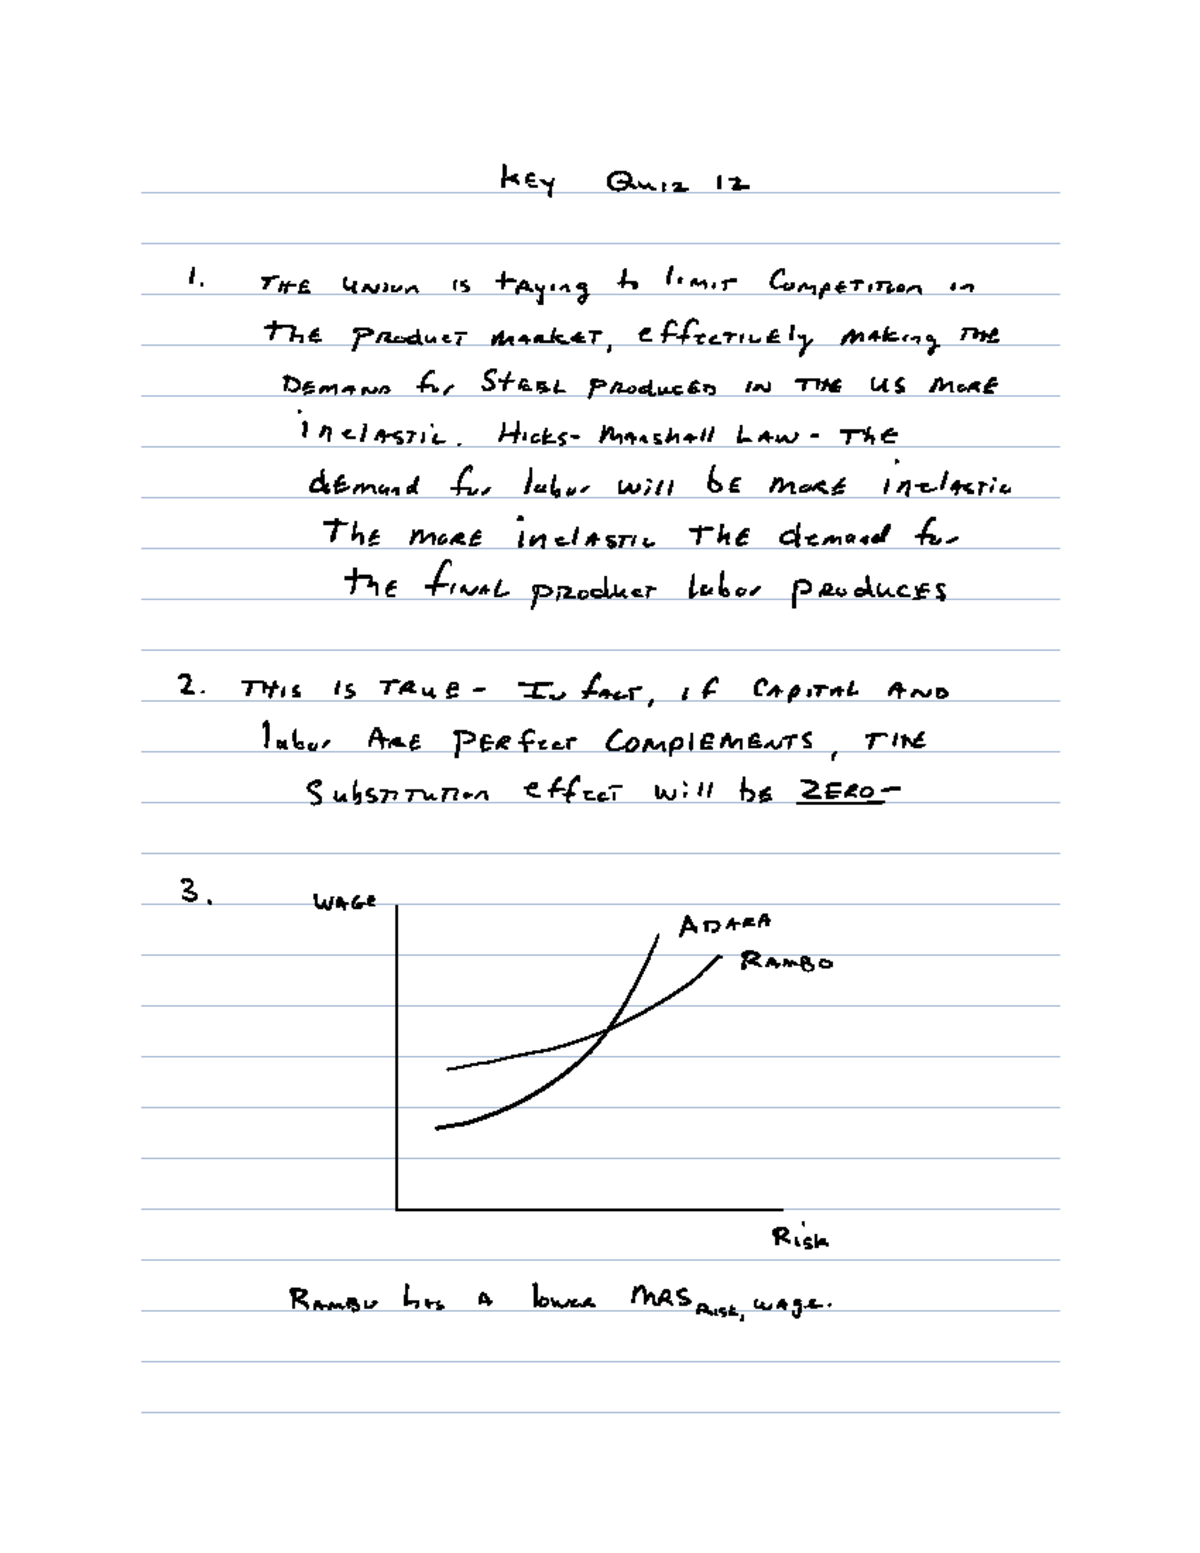 KEY Quiz 12
1. THE UNION is trying to limit Competition in
the product market, effectively making the
DEMAND for STEEL PRODUCED IN THE US MORE
inelastic. Hicks-Marshall LAW - THE
demand for labor will be more inelastic
THE MORE inelastic THE demand for
the final product labor produces
2. THIS IS TRUE - In fact, if CAPITAL AND
labor ARE PERFECT COMPLEMENTS, THE
Substitution effect will be ZERO-
3. WAGE
ADARA
RAMBO
Risk
RAMBO has A lower MRS Risk, wage.